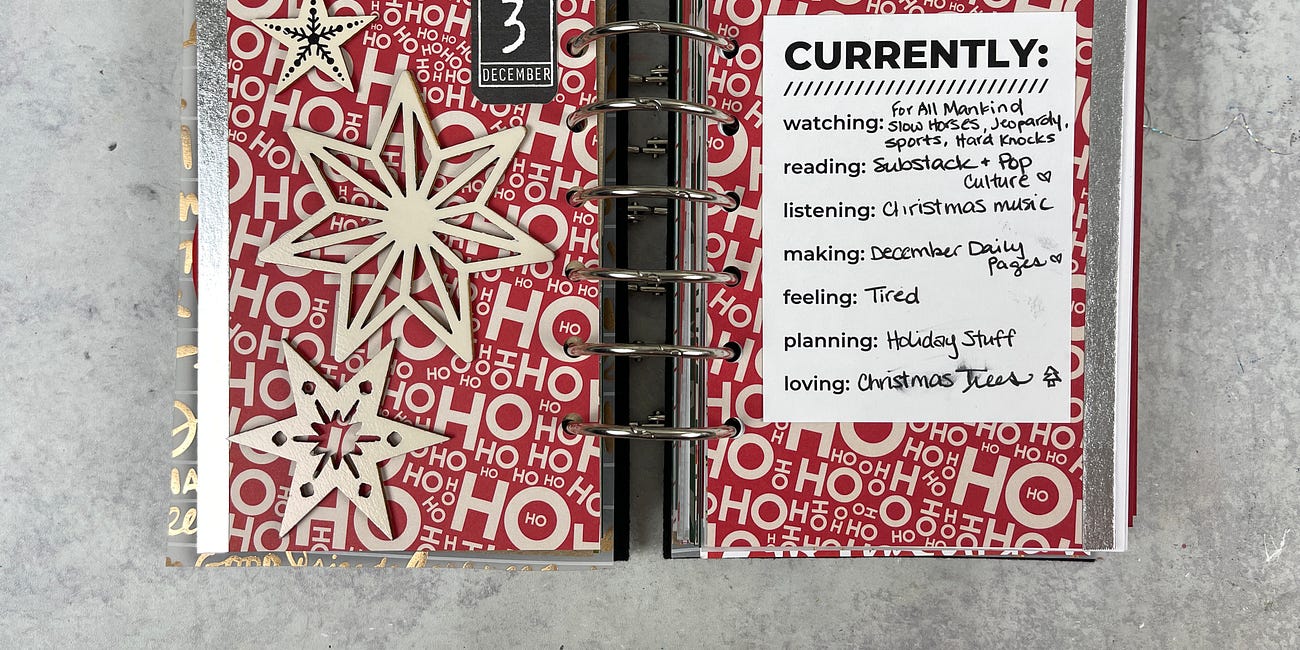 3
DECEMBER
CURRENTLY:
watching: For All Mankind
Slow Horses, Jeopardy,
sports, Hard Knocks
reading: Substack + Pop
Culture ♡
listening: Christmas music
making: December Daily
Pages ♡
feeling: Tired
planning: Holiday Stuff
loving: Christmas Trees
HO HO HO